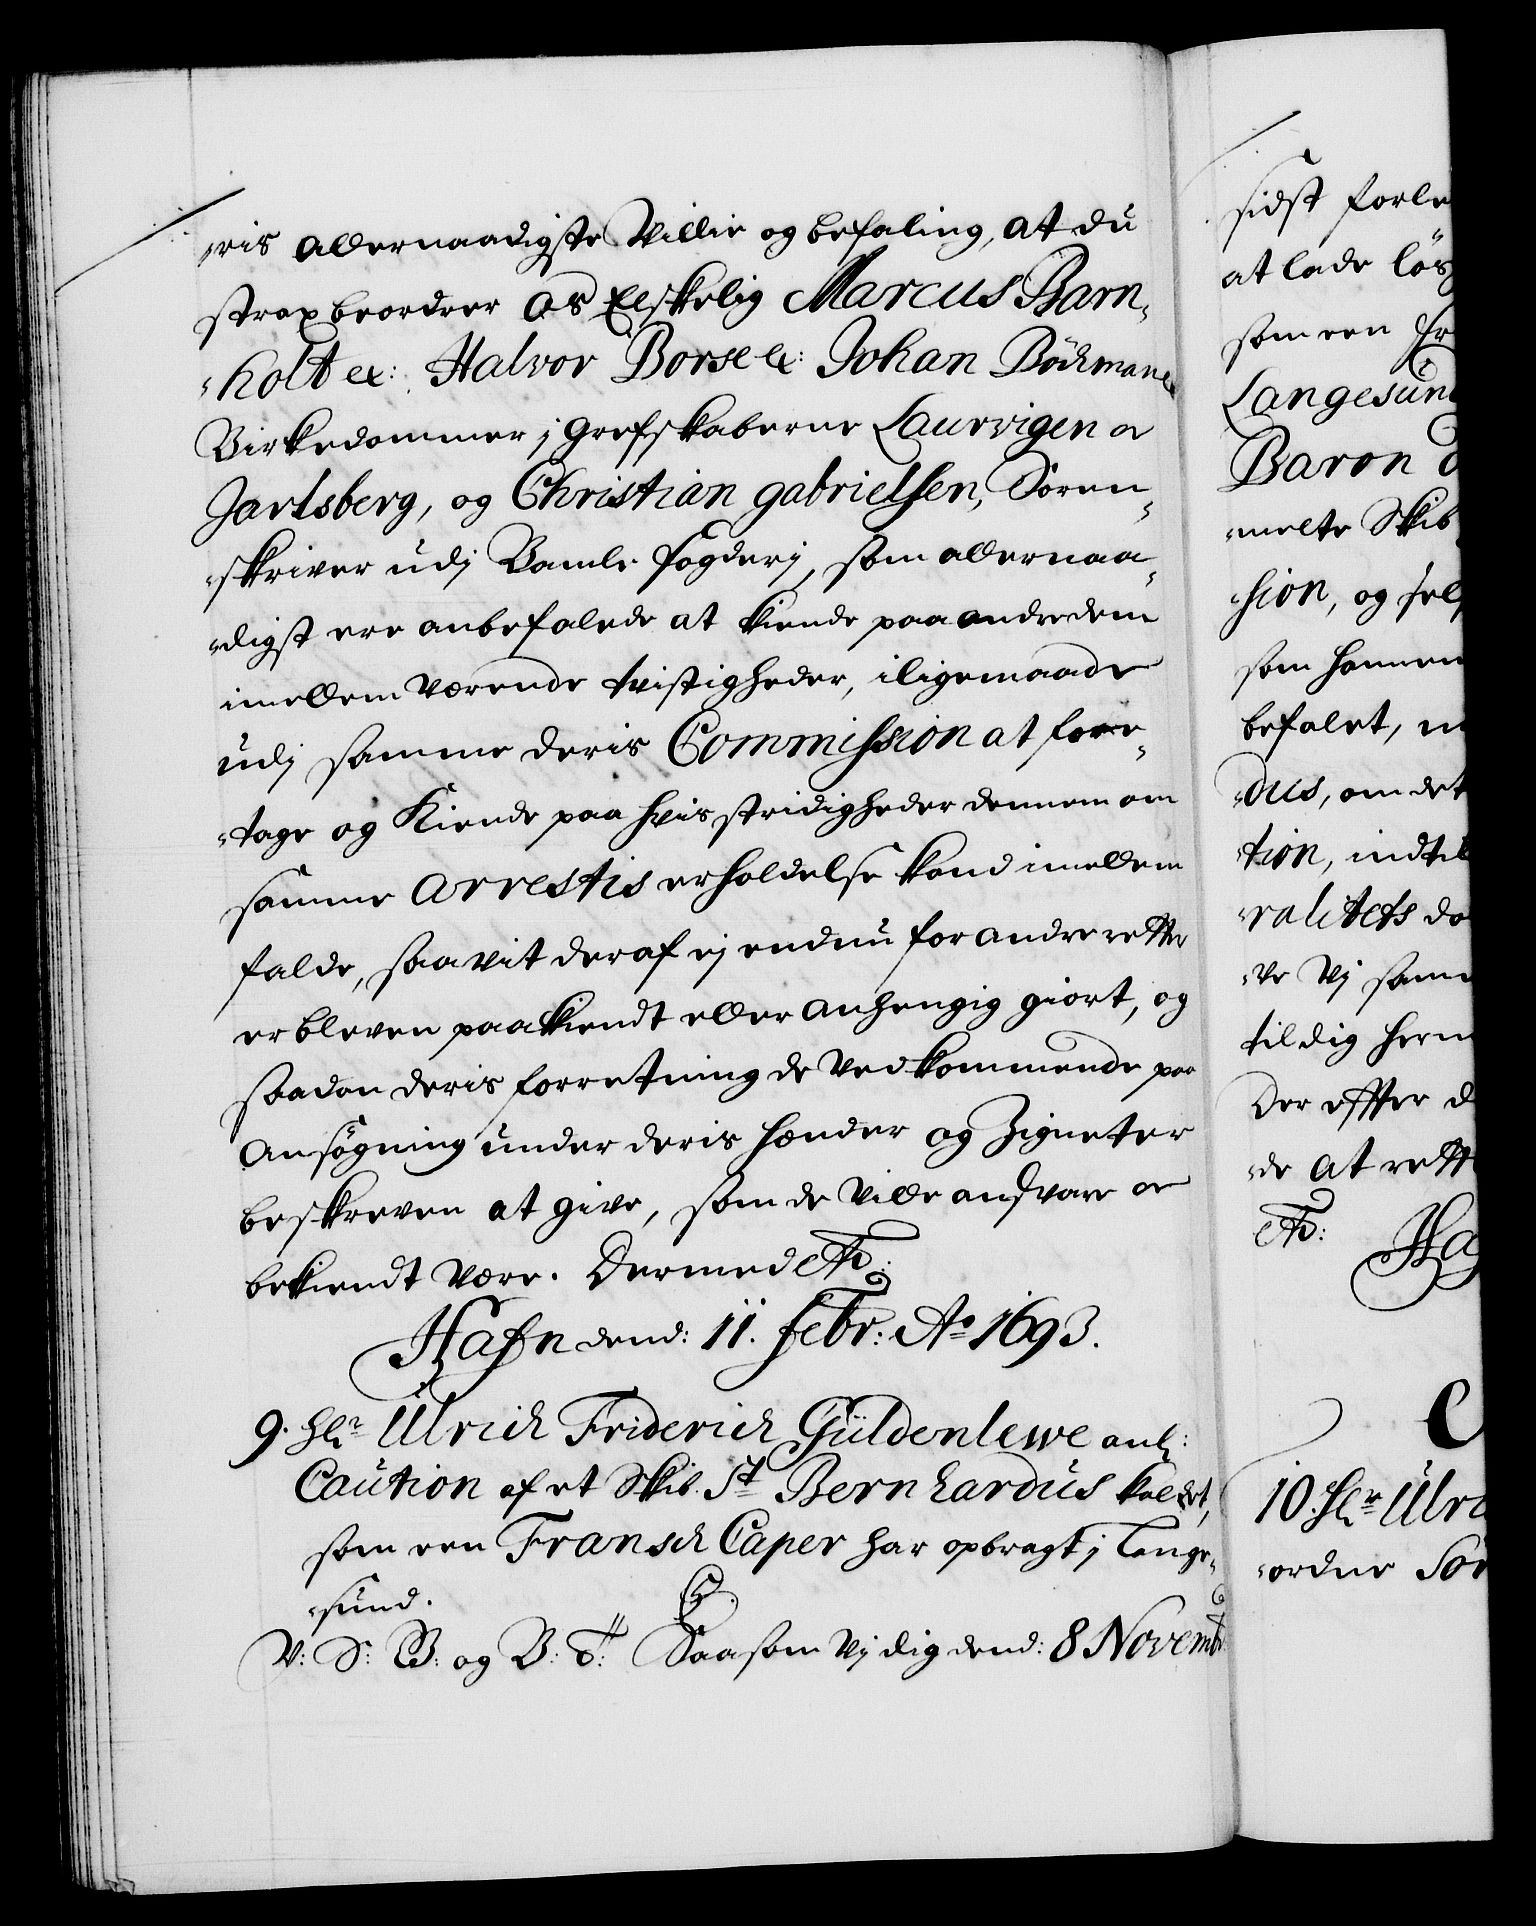 ris allernaadigste Villie og befaling, at du
strax beordrer Os Elskelig Marcus Barn-
holt etc: Halvor Borse etc: Johan Böchman etc
Birkedommer j Grefskaberne Laurvigen og
Jarlsberg, og Christian Gabrielsen, Soren-
skriver udj Bamle fogderj, som allernaa-
digst ere anbefalede at kiende paa andre dem
imellem Værende tvistigheder, iligemaade
udj samme deris Commission at fore-
tage og Kiende paa hvis stridigheder dennem om
samme Arrestis erholdelse kand imellem
falde, saavit deraf ej endnu for andre retter
er bleven paakiendt eller anhengig giort, og
saadan deris forretning de Vedkommende paa
Ansögning under deris hænder og Zigneter
beskreven at give, som de Ville andsvare og
bekiendt Være. Dermed etc:
Hafn dend: 11. Febr: Ao 1693.
9. Hr Ulrich Friderich Güldenlewe anl:
Caution af et Skib St Bernhardus kaldet,
som een Fransch Caper har opbragt j Lange-
sund.
V: S: G: og B: T: Saasom Vj dig dend: 8 Novemb:
sidst forle
at lade lös
som een Fr
Langesund
Baron
melte Skib
sion, og self
som hannem
befalet,
dus, om det
tion, indtil
ralitets
ve Vj sam
til dig herm
Der effter d
de at rett
etc: Ha
C
10. Hr Ulr
ordne Sör